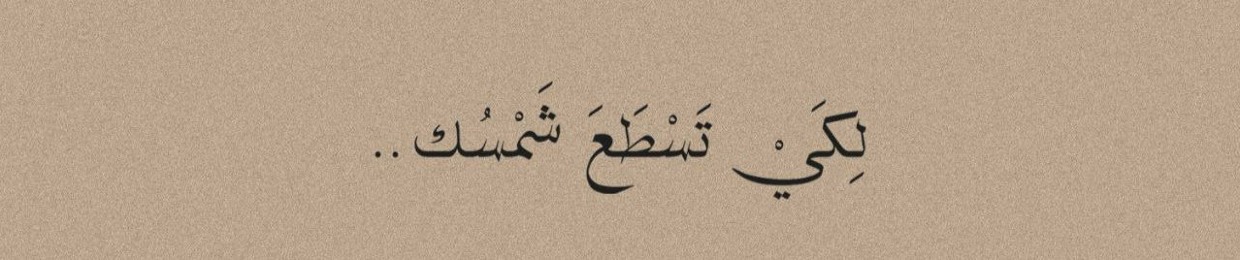 لِكَيْ تَسْطَعَ شَمْسُك..